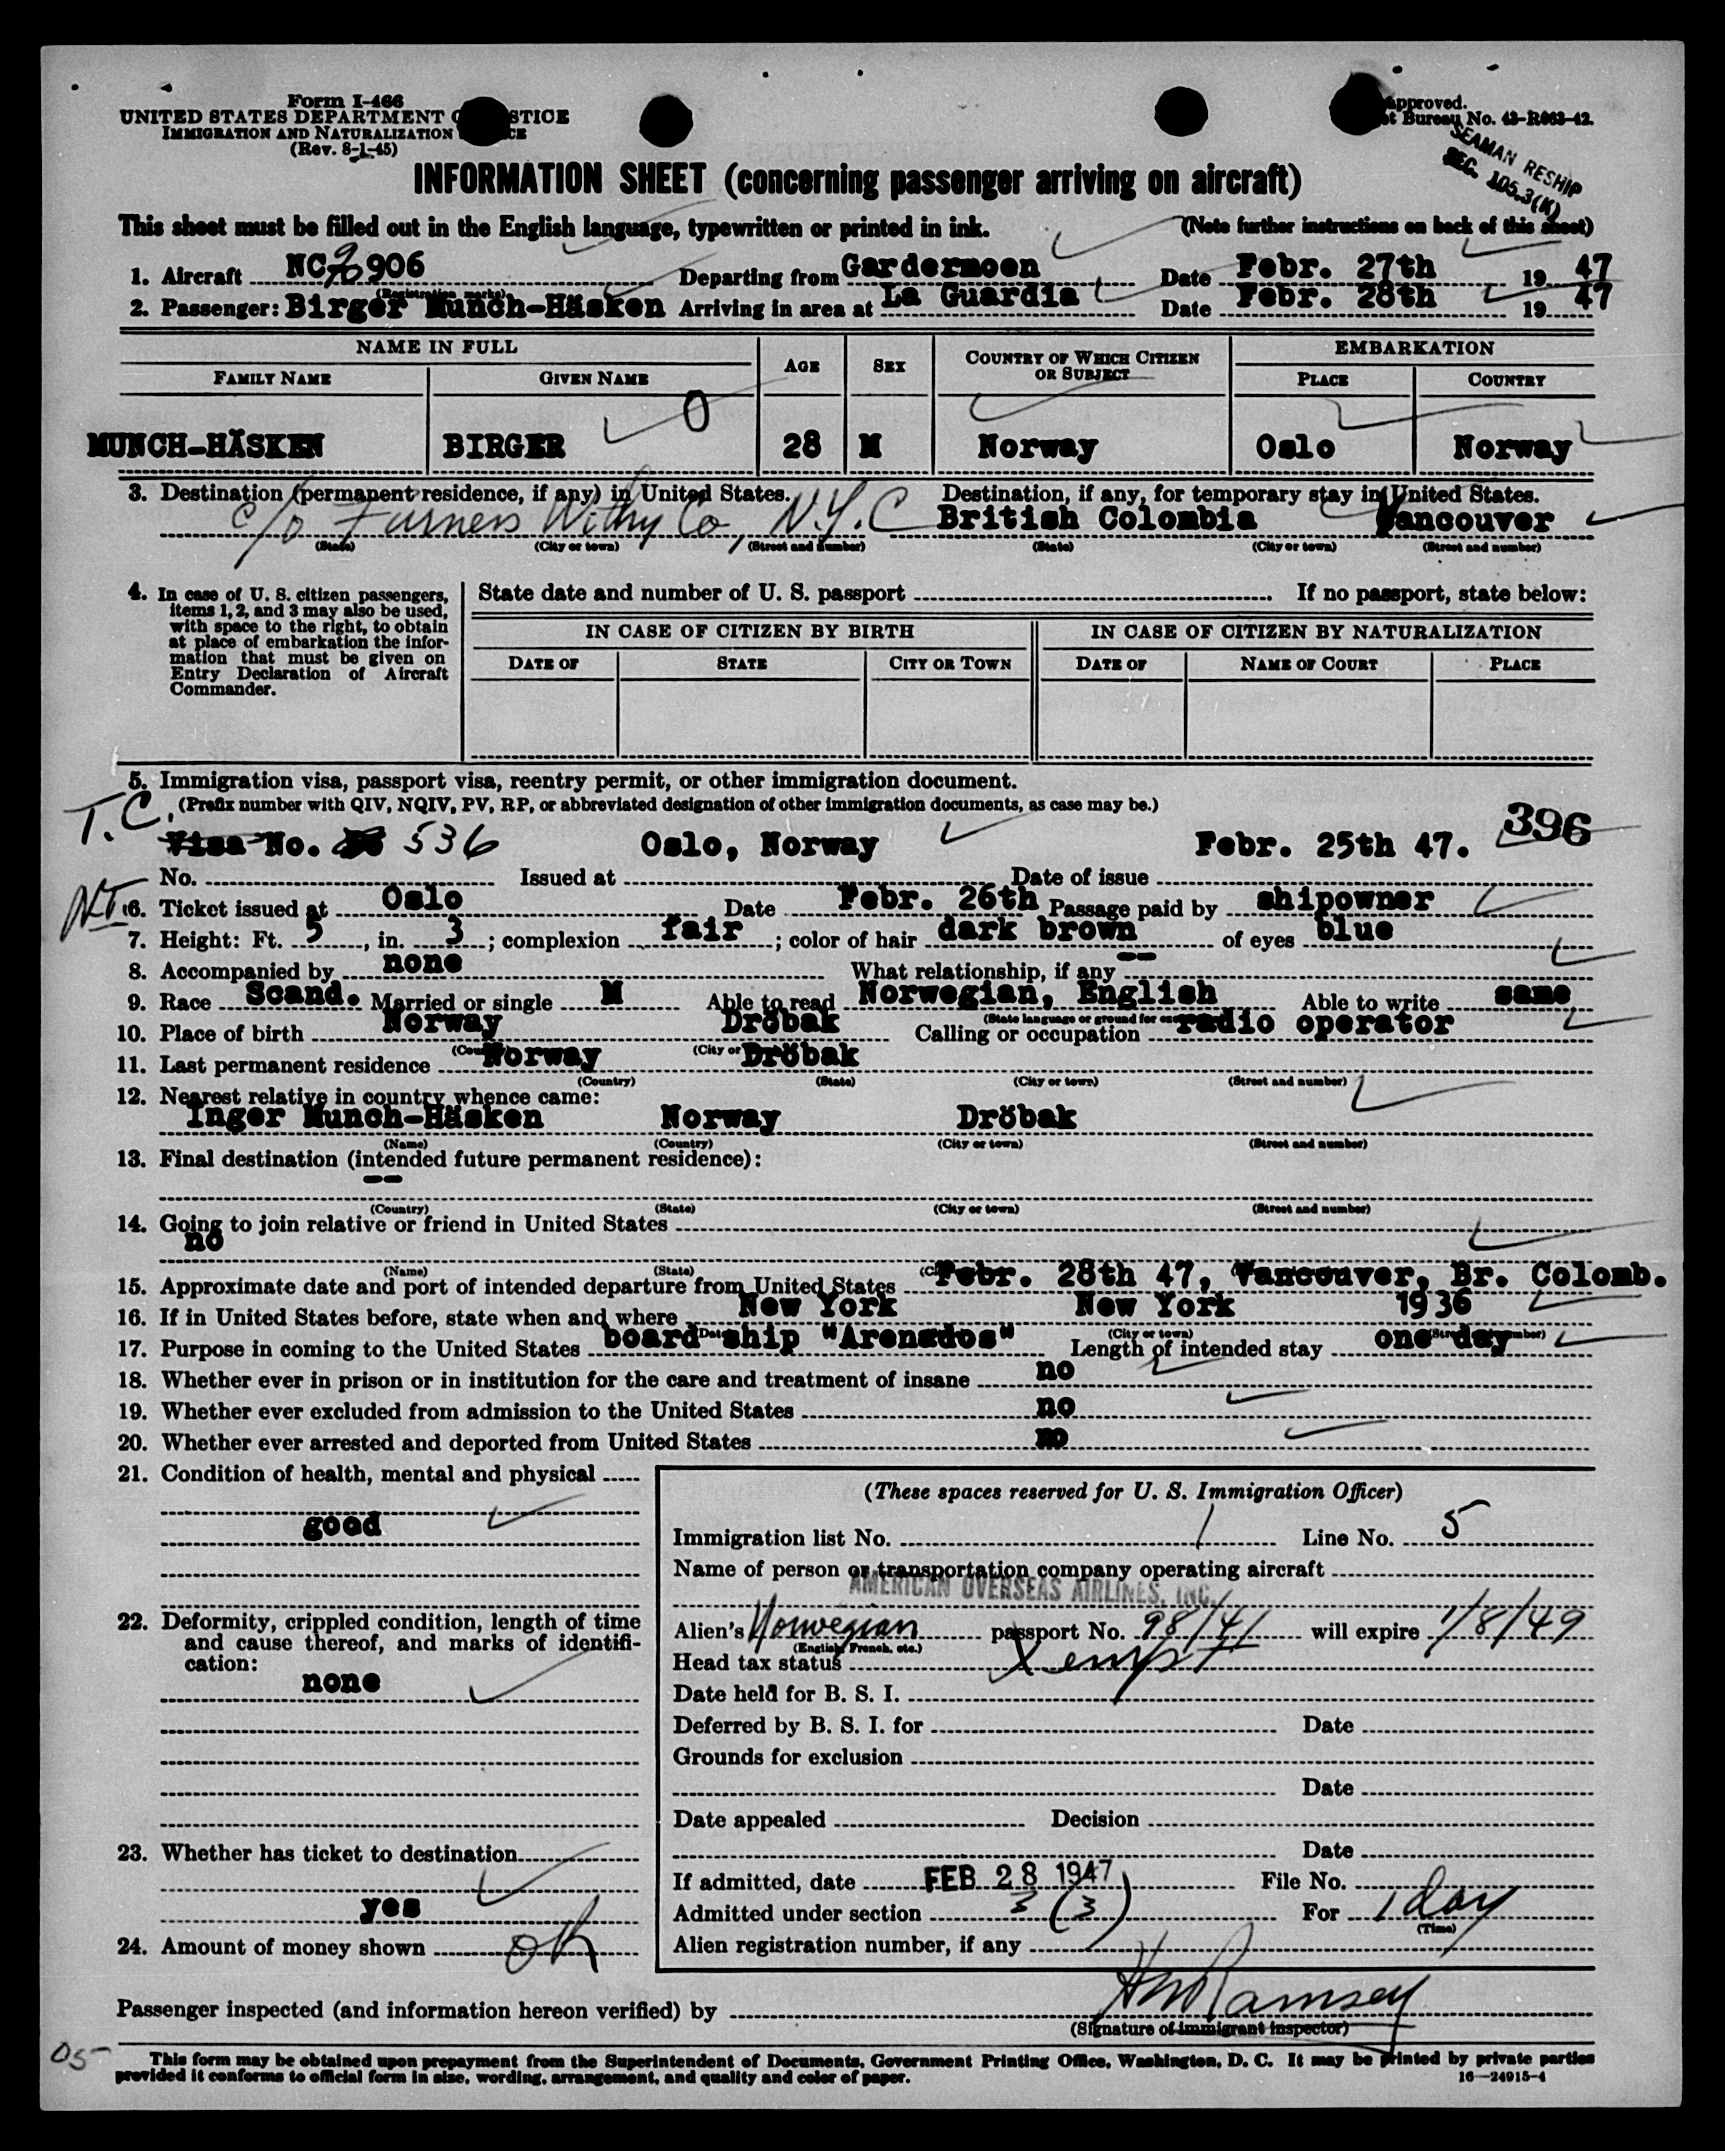 Form I-466
UNITED STATES DEPARTMENT
IMMIGRATION AND NATURALIZATION
(Rev. 8-1-45)
Approved.
Bureau No. 43-R063-42.
SEAMAN RESHIP
SEC. 105.3(K)
INFORMATION SHEET (concerning passenger arriving on aircraft)
This sheet must be filled out in the English language, typewritten or printed in ink. (Note further instructions on back of this sheet)
1. Aircraft NC 90906 Departing from Gardermoen Date Febr. 27th 19 47
(Registration marks)
2. Passenger: Birger Munch-Häsken Arriving in area at La Guardia Date Febr. 28th 19 47
NAME IN FULL AGE SEX COUNTRY OF WHICH CITIZEN OR SUBJECT EMBARKATION
FAMILY NAME GIVEN NAME PLACE COUNTRY
MUNCH-HÄSKEN BIRGER O 28 M Norway Oslo Norway
3. Destination (permanent residence, if any) in United States. Destination, if any, for temporary stay in United States.
c/o Furness Withy Co, N.Y.C British Colombia Vancouver
(State) (City or town) (Street and number) (State) (City or town) (Street and number)
4. In case of U. S. citizen passengers, items 1, 2, and 3 may also be used, with space to the right, to obtain at place of embarkation the information that must be given on Entry Declaration of Aircraft Commander.
State date and number of U. S. passport If no passport, state below:
IN CASE OF CITIZEN BY BIRTH IN CASE OF CITIZEN BY NATURALIZATION
DATE OF STATE CITY OR TOWN DATE OF NAME OF COURT PLACE
5. Immigration visa, passport visa, reentry permit, or other immigration document.
T.C. (Prefix number with QIV, NQIV, PV, RP, or abbreviated designation of other immigration documents, as case may be.)
396
Visa No. 536 Oslo, Norway Febr. 25th 47.
No. Issued at Date of issue
6. Ticket issued at Oslo Date Febr. 26th Passage paid by shipowner
7. Height: Ft. 5, in. 3; complexion fair; color of hair dark brown of eyes blue
8. Accompanied by none What relationship, if any --
9. Race Scand. Married or single M Able to read Norwegian, English Able to write same
10. Place of birth Norway Dröbak Calling or occupation radio operator
11. Last permanent residence Norway Dröbak
(Country) (State) (City or town) (Street and number)
12. Nearest relative in country whence came:
Inger Munch-Häsken Norway Dröbak
(Name) (Country) (City or town) (Street and number)
13. Final destination (intended future permanent residence):
--
(Country) (State) (City or town) (Street and number)
14. Going to join relative or friend in United States
no
(Name) (State)
15. Approximate date and port of intended departure from United States Febr. 28th 47, Vancouver, Br. Colomb.
16. If in United States before, state when and where New York New York 1936
17. Purpose in coming to the United States board ship "Arenados" Length of intended stay one day
18. Whether ever in prison or in institution for the care and treatment of insane no
19. Whether ever excluded from admission to the United States no
20. Whether ever arrested and deported from United States no
21. Condition of health, mental and physical
good
22. Deformity, crippled condition, length of time and cause thereof, and marks of identification:
none
23. Whether has ticket to destination
yes
24. Amount of money shown OK
(These spaces reserved for U. S. Immigration Officer)
Immigration list No. 1 Line No. 5
Name of person or transportation company operating aircraft
AMERICAN OVERSEAS AIRLINES, INC.
Alien's Norwegian passport No. 98/41 will expire 1/8/49
(English, French, etc.)
Head tax status Xempt
Date held for B. S. I.
Deferred by B. S. I. for Date
Grounds for exclusion
Date
Date appealed Decision
Date
If admitted, date FEB 28 1947 File No.
Admitted under section 3 (3) For 1 day
(Time)
Alien registration number, if any
Passenger inspected (and information hereon verified) by HM Ramsey
(Signature of immigrant inspector)
05
This form may be obtained upon prepayment from the Superintendent of Documents, Government Printing Office, Washington, D. C. It may be printed by private parties
provided it conforms to official form in size, wording, arrangement, and quality and color of paper.
16—24915-4